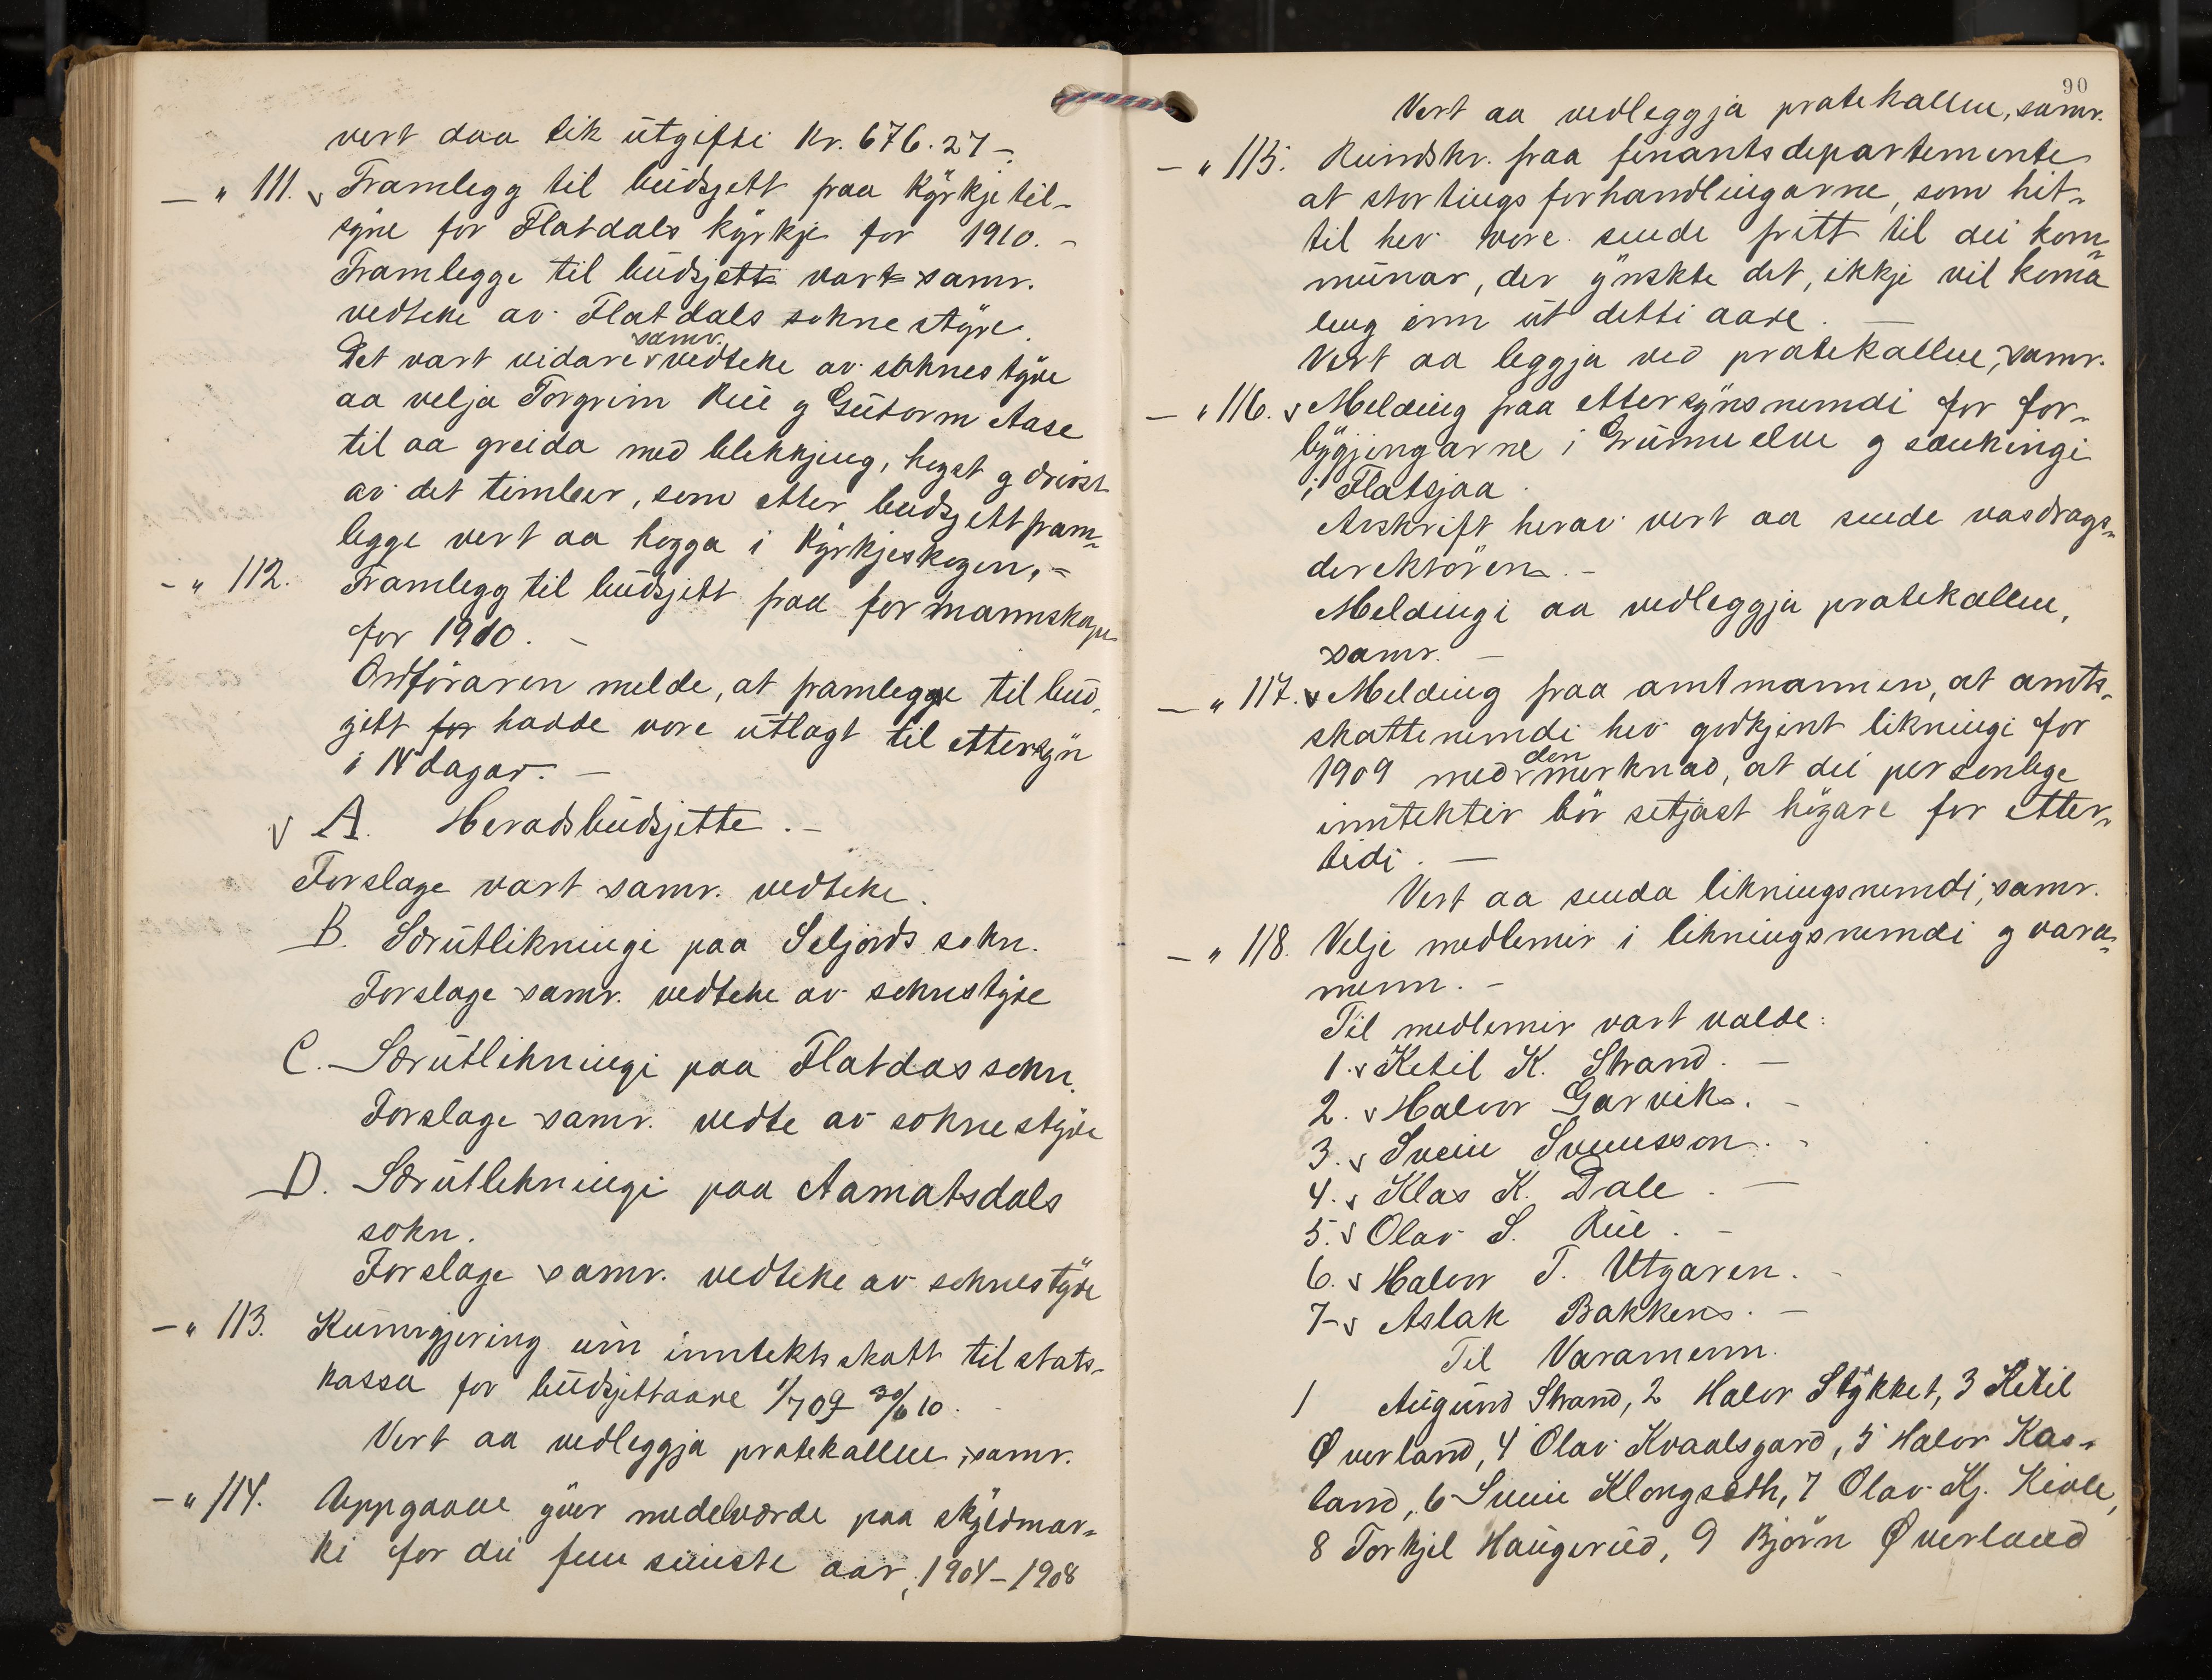 vert daa lik utgifti kr. 676.27 –
– " 111. v Framlegg til budsjett fraa kyrkjetil-
syne for Flatdals kyrkje for 1910. –
Framlegge til budsjett vart samr.
vedteke av Flatdals soknestyre.
samr.
Det vart vidare v vedteke av soknestyre
aa velja Torgrim Rue g Gutorm Aase
til aa greida med blekkjing, hogst g drivst
av det timber, som etter budsjettfram-
legge vert aa hogga i kyrkjeskogen. –
– " 112. Framlegg til budsjett fraa formannskape
for 1910. –
Ordföraren melde, at framlegge til bud-
sjett for hadde vore utlagt til ettersyn
i 14 dagar. –
v A. Heradsbudsjette. –
Forslage vart samr. vedteke.
B. Særutlikningi paa Seljords sokn.
Forslage samr. vedteke av soknestyre
C. Særutlikningi paa Flatdas sokn.
Forslage samr. vedte av soknestyre
D. Særutlikningi paa Aamatsdals
sokn.
Forslage samr. vedteke av soknestyre
– " 113. Kunngjering um inntektsskatt til stats-
kassa for budsjettaare 1/7 09 30/6 10. –
Vert aa vedleggja protokallen, samr.
– " 114. Uppgaave yver medelværde paa skyldmar-
ki for dei fem siuste aar, 1904–1908
90
Vert aa vedleggja protokallen, samr.
– " 115. Rundskr. fraa finantsdepartemente
at stortingsforhandlingarne, som hit-
til hev vore sende fritt til dei kom-
munar, der ynskte det, ikkje vil koma
leng enn ut detti aare. –
Vert aa leggja ved protokallen, samr.
– " 116. v Melding fraa ettersynsnemdi for for-
bygjingarne i Grunnuelve g sænkingi
i Flatsjaa.
Avskrift herav vert aa sende vasdrags-
direktören. –
Meldingi aa vedleggja protokallen,
samr. –
– " 117. v Melding fraa amtmannen, at amts-
skattenemdi hev godkjent likningi for
den
1909 med v merknad, at dei personlege
inntekter bör setjast högare for etter-
tidi. –
Vert aa senda likningsnemdi, samr.
– " 118. Velje medlemir i likningsnemdi g vara-
menn. –
Til medlemir vart valde:
1. v Ketil K. Strand. –
2. v Halvor Garvik. –
3. v Svein Svensson. –
4. v Klas K. Dale. –
5. v Olav S. Rue. –
6. v Halvor T. Utgaren. –
7 – v Aslak Bakken. –
Til Varamenn.
1 Augund Strand, 2 Halvor Stykket, 3 Ketil
Øverland, 4 Olav Kvaalsgard, 5 Halvor Kas-
land, 6 Svein Klongseth, 7 Olav Kj. Kivle,
8 Torkjel Haugerud, 9 Björn Øverland